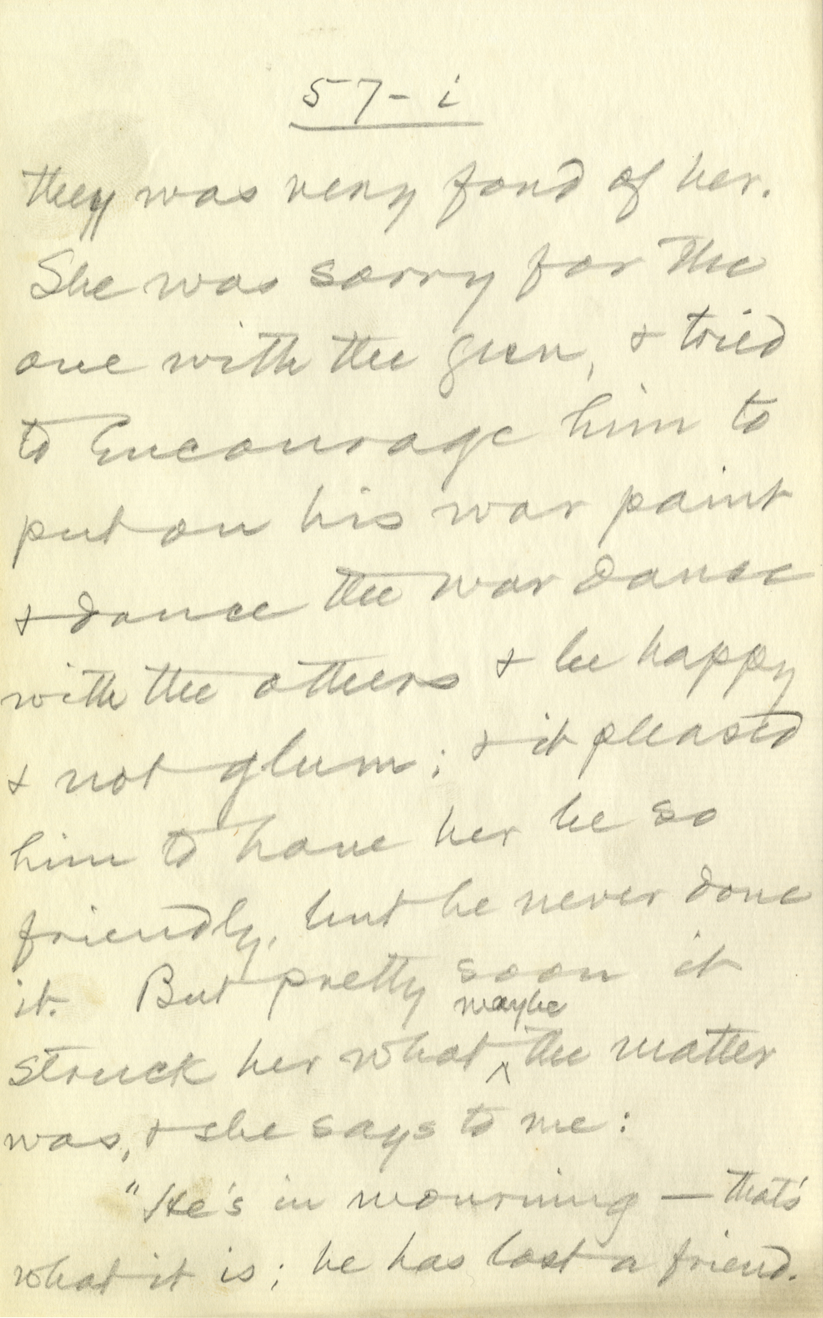 57-i
they was very fond of her.
She was sorry for the
one with the gun, & tried
to encourage him to
put on his war paint
& dance the war dance
with the others & be happy
& not glum; & it pleased
him to have her be so
friendly, but he never done
it. But pretty soon it
maybe
struck her what ^ the matter
was, & she says to me:
"He's in mourning — that's
what it is; he has lost a friend.